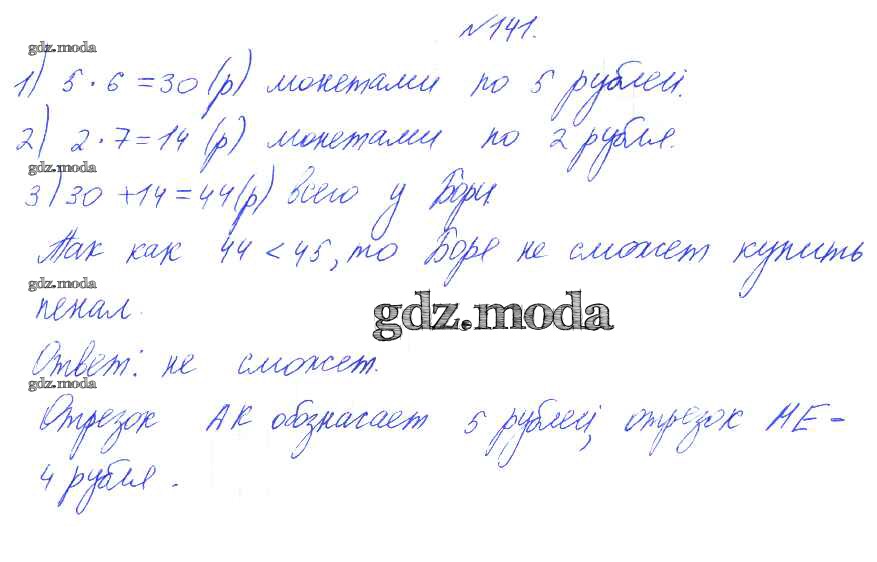 №141.
gdz.moda
1) 5 · 6 = 30 (р) монетами по 5 рублей.
2) 2 · 7 = 14 (р) монетами по 2 рубля.
gdz.moda
3) 30 + 14 = 44 (р) всего у Бори
Так как 44 < 45, то Боре не сможет купить
gdz.moda
пенал.
gdz.moda
Ответ: не сможет.
gdz.moda
Отрезок АК обозначает 5 рублей, отрезок МЕ -
4 рубля.